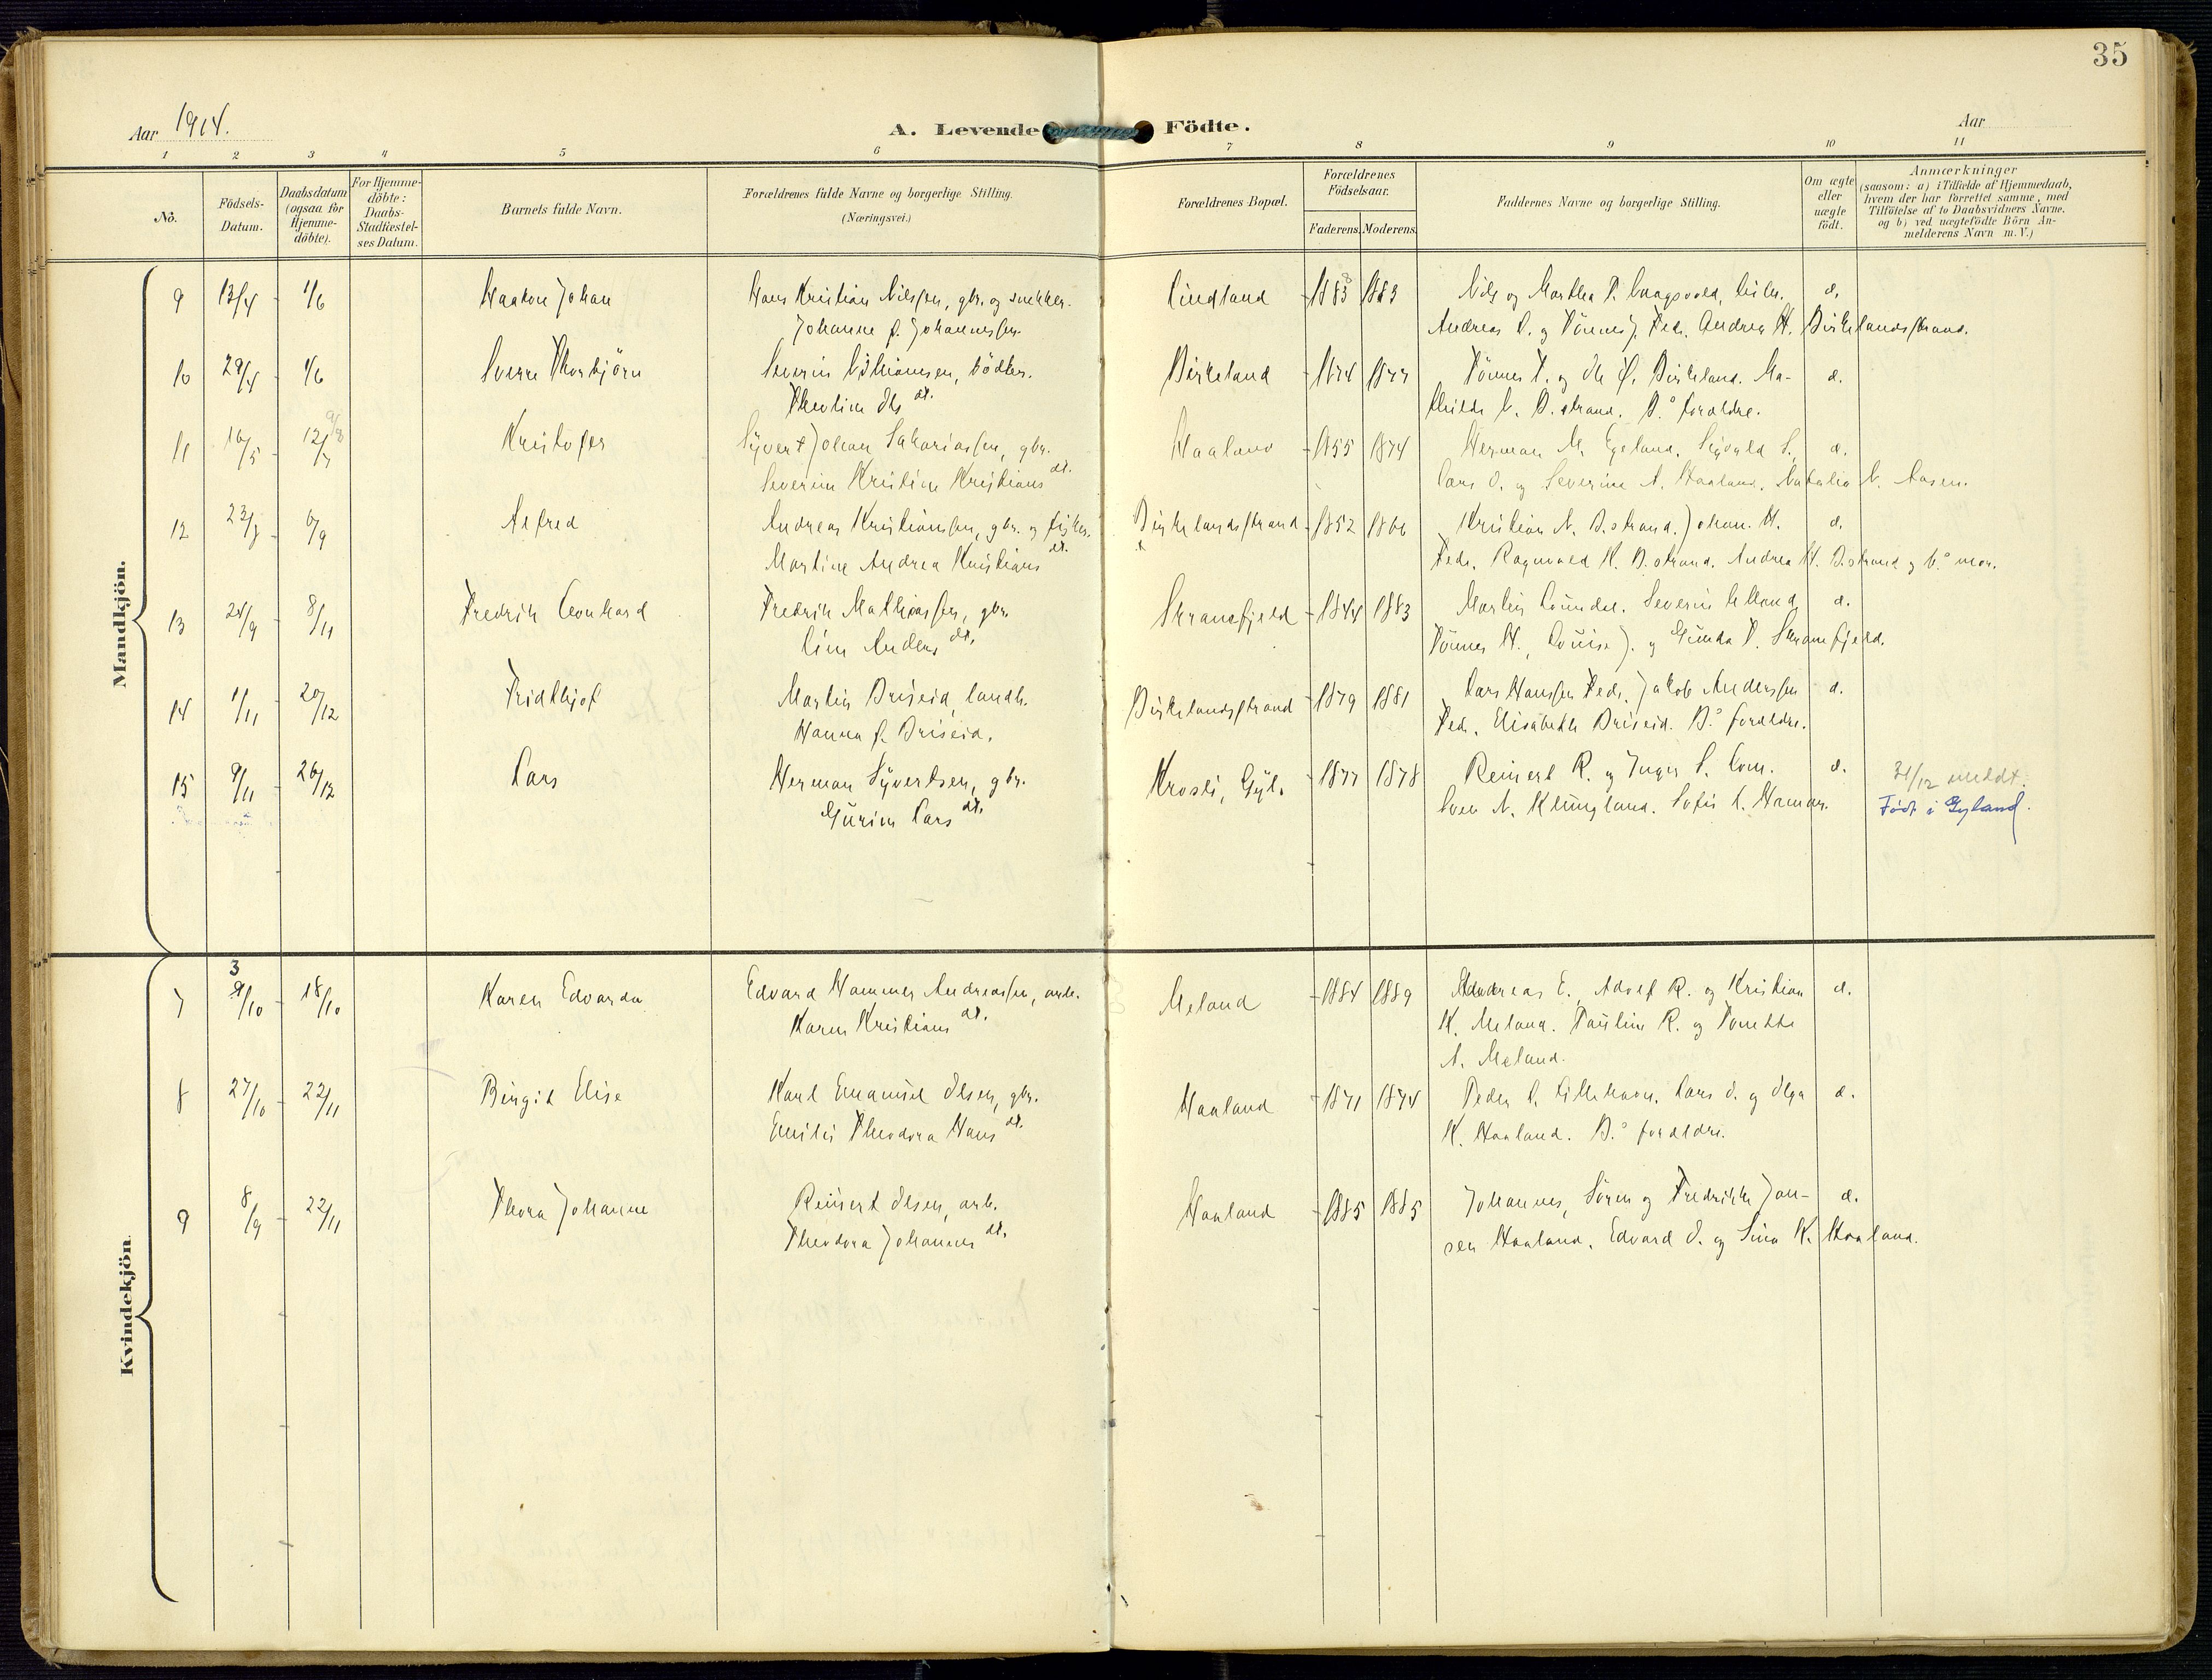 35
Aar 1914. A. Levende Födte. Aar
1 2 3 4 5 6 7 8 9 10 11
No. Födsels-Datum. Daabsdatum (ogsaa for Hjemme-döbte). For Hjemme-döbte: Daabs-Stadfæstel-ses Datum. Barnets fulde Navn. Forældrenes fulde Navne og borgerlige Stilling. (Næringsvei.) Forældrenes Bopæl. Forældrenes Födselsaar. Faderens. Moderens. Faddernes Navne og borgerlige Stilling. Om ægte eller uægte födt. Anmærkninger (saasom: a) i Tilfælde af Hjemmedaab, hvem der har forrettet samme, med Tilföielse af to Daabsvidners Navne. og b) ved uægtefödte Börn An-melderens Navn m.V.)
Mandkjön.
9 13/4 1/6 Haakon Johan Hans Kristian Nilssen, gbr. og snekker. Lindland 1883 1883 Nils og Martha
Johanne f. Johannessen Andreas og Tønnes J. Fed. Andrea H. Birkelandsstrand.
10 29/4 1/6 Sverre Thorbjörn Severin Villiamsen, bödker. Birkeland 1874 1877 Tönnes T. og Birkeland. Ma- æ.
Theoline Ols dt. thilde B.strand. B.s forældre.
11 16/5 12/7 Kristofer Syvert Johan Sakariassen, gbr. Haaland 1855 1874 Herman M. Egeland. Sigvald S. æ.
Severine Kristine Kristians dt. Lars O. og Severine A. Haaland. Natalia N. Aasen.
12 23/7 6/9 Alfred Andreas Kristiansen, gbr. og fisker. Birkelandsstrand 1852 1866 Kristian N. B.strand. Johan H. æ.
Martine Andrea Kristians dt. Fed. Ragnvald K. B.strand. Andrea H. B.strand og b.s mor.
13 24/9 8/11 Fredrik Leonhard Fredrik Mathiassen, gbr. Skransfjeld 1844 1883 Martin Severin æ.
Line Anders dt. Tönnes H., Louise J. og Gunda T. Skransfjeld.
14 1/11 20/12 Fridthjof Martin Briseid, landh. Birkelandsstrand 1879 1881 Lars Hanssen Fed. Jakob Anderssen æ.
Hanna f. Briseid. Fed. Elisabeth Briseid. B.s forældre.
15 9/11 26/12 Lars Herman Syvertsen, gbr. Krosli, Gyl. 1877 1878 Reinert R. og Inger S. Lom. æ. 31/12 meldt.
Gurine Lars dt. Sven N. Klungland. Sofie Hamar. Födt i Gyland.
Kvindekjön
3
7 9/10 18/10 Karen Edvarda Edvard Hammer Andreassen, arb. Meland 1884 1889 Andreas E., Adolf R. og Kristian æ.
Karen Kristians dt. K. Meland. Pauline R. og Tonette
A. Meland.
8 27/10 22/11 Birgit Elise Karl Emanuel Olsen, gbr. Haaland 1871 1874 Peder Lillehavn. Lars O. og Olga æ.
Emilie Theodora Hans dt. K. Haaland. B.s forældre.
9 8/9 22/11 Thora Johanne Reinert Olsen, arb. Haaland 1885 1885 Johannes, Sören og Fredrikke Jan- æ.
Theodora Johannes dt. sen Haaland. Edvard O. og Sina K. Haaland.